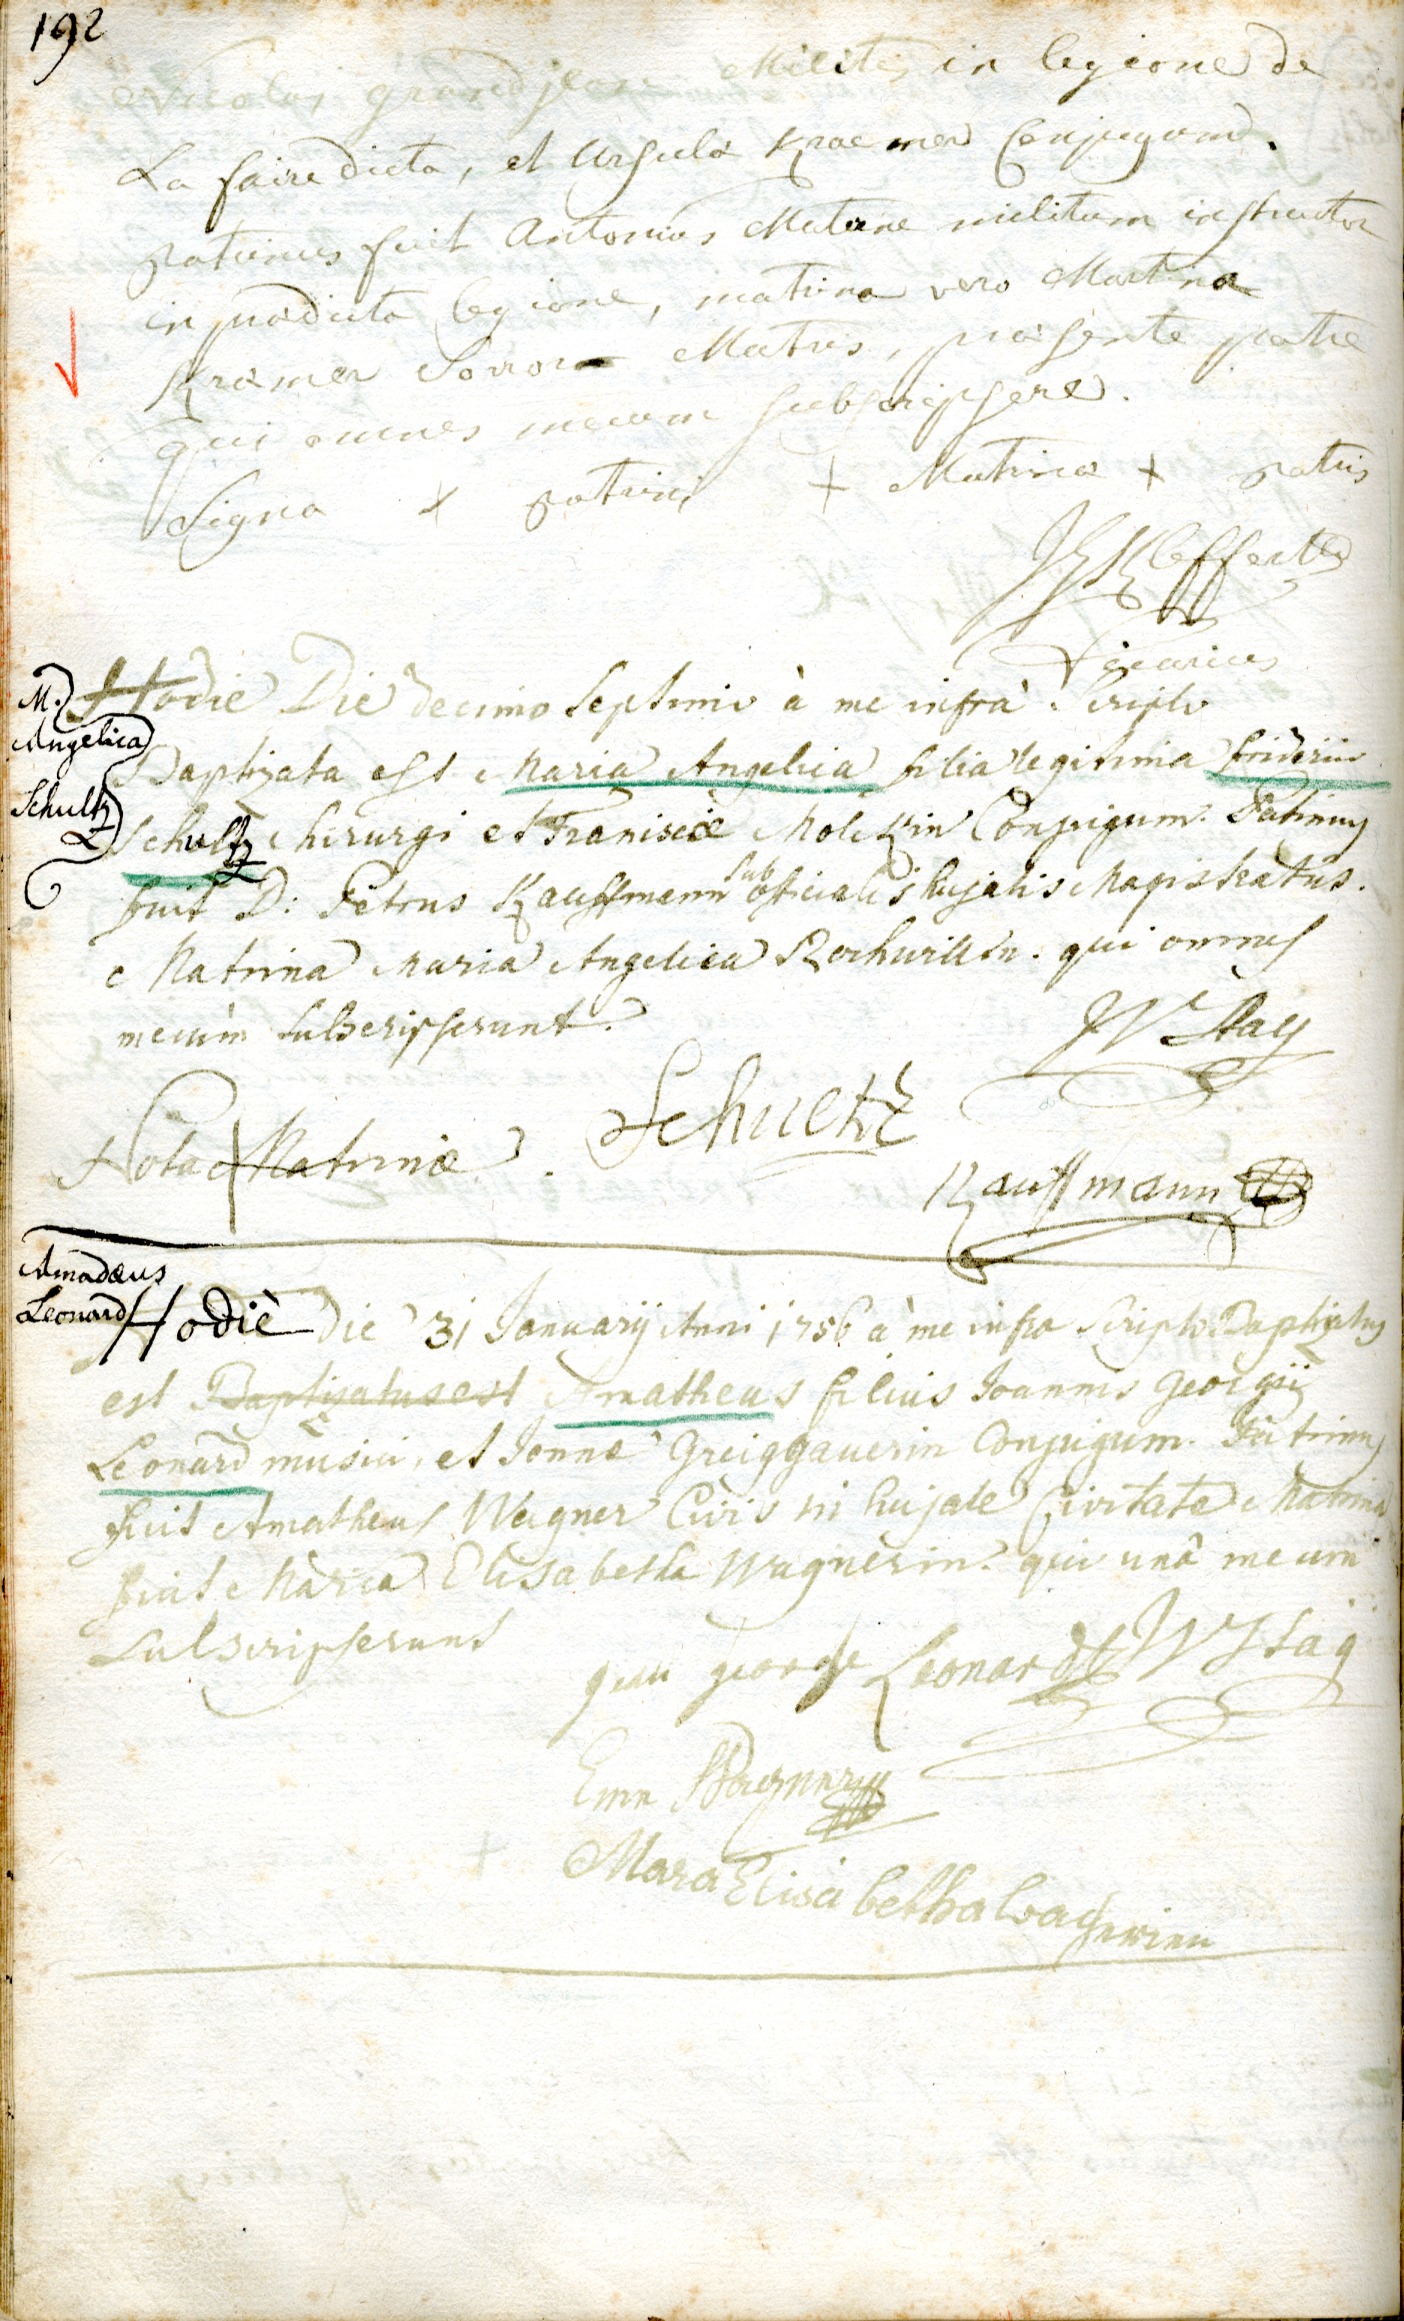 192
Nicolas grandjean Militis in legione de
La faire dicta, et Ursula Kraemer Conjugum.
patrinus fuit Antonius Materne militum instructor
in praedicta legione, matrina vero Martina
Kramer Soror Matris, praesente patre
qui omnes mecum subscripsere.
Signa + patrini + Matrinae + patris
Kleffert
Vicarius
M.
Angelica
Schultz
Hodie Die decimo Septimo à me infrà Scripto
Baptizata est Maria Angelica filia legitima friderici
Schultz chirurgi et Franiscae Molckin Conjugum. Patrinus
fuit D: Petrus Kauffmann sub officialis hujatis Magistratus.
Matrina Maria Angelica qui omnes
mecùm subscripserunt.
JW Stay
Nota + Matrinae. Schueltz
Kauffmann
Amadæus
Leonard
Hodiè die 31 Januarij Anni 1756 à me infra Scripto Baptizatus
est Baptizatus est Amatheus filius Joannis Georgij
Leonard musici, et Annae Greiggauerin Conjugum. Patrinus
fuit Amatheus Wagner Civis in hujate Civitate Matrina
fuit Maria Elisabetha Wagnerin. qui unà mecum
subscripserunt
jean george Leonardt JW Staÿ
Mara Elisabetha Wagnerinn